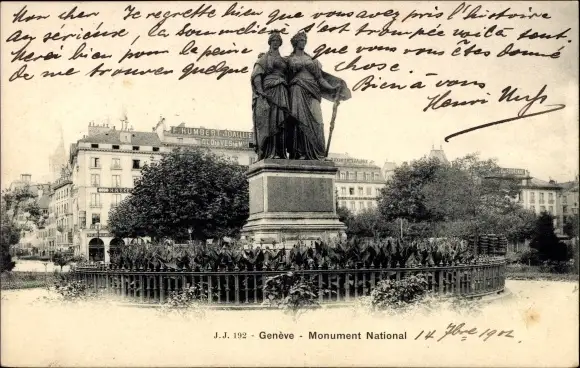 Mon cher Je regrette bien que vous avez pris l'histoire
au sérieux, la sommelière s'est trompée voilà tout
Merci bien pour la peine que vous vous êtes donné
de me trouver quelque chose.
Bien à vous
Henri
HUMBERT JOAILLIER
J.J. 192 - Genève - Monument National
14 7bre 1902